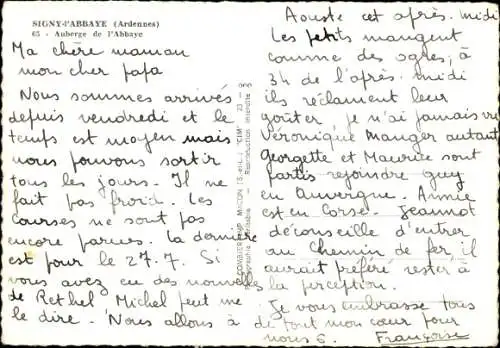 SIGNY-l'ABBAYE (Ardennes)
65 - Auberge de l'Abbaye
Ma chère maman
mon cher papa
Nous sommes arrivés
depuis vendredi et le
temps est moyen mais
nous pouvons sortir
tous les jours. Il ne
fait pas froid. Les
courses ne sont pas
encore parues. la dernière
est pour le 27.7. Si
vous avez eu des nouvelles
de Rethel Michel peut me
le dire. Nous allons à
Aouste cet après-midi
Les petits mangent
comme des ogres, à
3h de l'après-midi
ils réclament leur
goûter, je n'ai jamais vu
Véronique Manger autant
Georgette et Maurice sont
partis rejoindre guy
en Auvergne. Annie
est en Corse. Jeannot
déconseille d'entrer
au Chemin de fer, il
aurait préféré rester à
la perception.
Je vous embrasse tous
de tout mon cœur pour
nous 6. Françoise
COMBIER IMP. MACON (S.-et-L.) "CIM"
Reproduction interdite